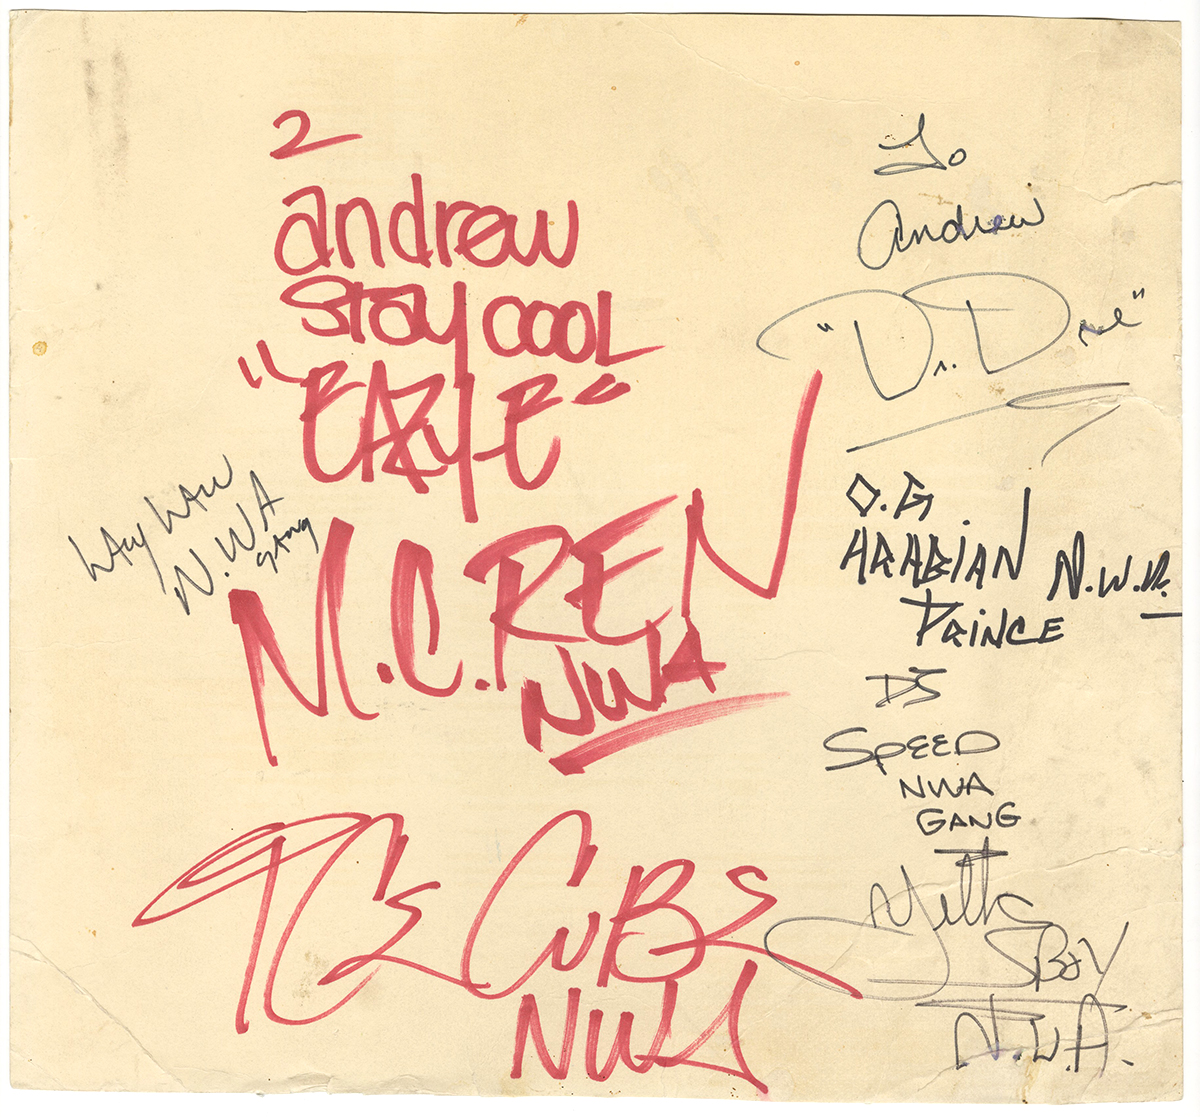 2
andrew
stay cool
"EAZY-E"
LAW
N.WA
GANG
M.C. REN
NWA
ICE CUBE
NWA
To
Andrew
"Dr. Dre"
O.G
ARABIAN N.W.A.
PRINCE
DJ
SPEED
NWA
GANG
BOY
N.W.A.